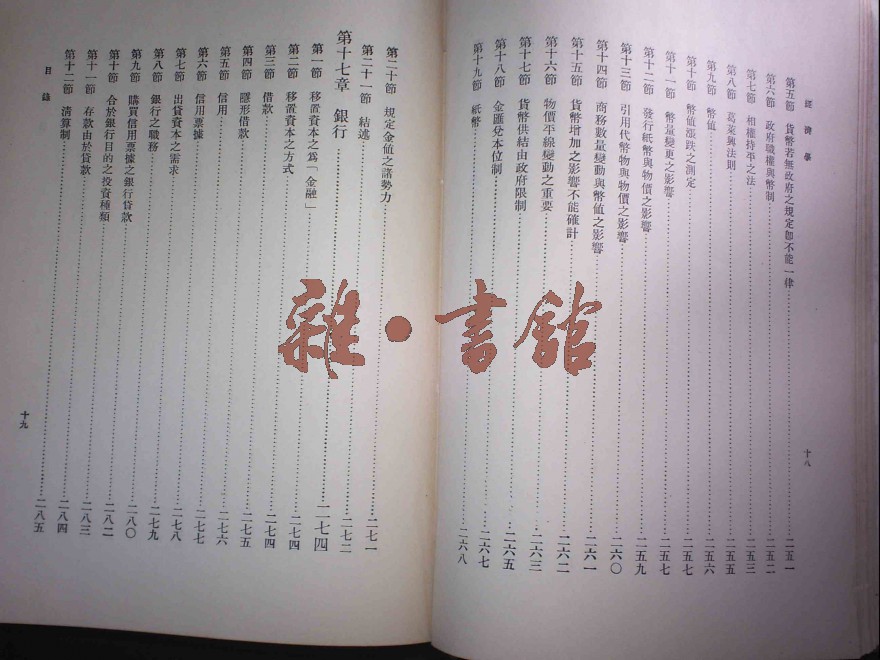 經濟學
第五節 貨幣若無政府之規定卽不能一律 二五一
第六節 政府職權與幣制 二五二
第七節 相權持平之法 二五三
第八節 葛萊興法則 二五五
第九節 幣值 二五六
第十節 幣值漲跌之測定 二五七
第十一節 幣量變更之影響 二五七
第十二節 發行紙幣與物價之影響 二五九
第十三節 引用代幣物與物價之影響 二六〇
第十四節 商務數量變動與幣値之影響 二六一
第十五節 貨幣增加之影響不能確計 二六二
第十六節 物價平線變動之重要 二六三
第十七節 貨幣供給由政府限制 二六五
第十八節 金匯兌本位制 二六七
第十九節 紙幣 二六八
十八
第二十節 規定金値之諸勢力 二七一
第二十一節 結述 二七二
第十七章 銀行 二七四
第一節 移置資本之爲「金融」 二七四
第二節 移置資本之方式 二七四
第三節 借款 二七四
第四節 隱形借款 二七五
第五節 信用 二七六
第六節 信用票據 二七七
第七節 出貸資本之需求 二七八
第八節 銀行之職務 二七九
第九節 購買信用票據之銀行貸款 二八〇
第十節 合於銀行目的之投資種類 二八二
第十一節 存款由於貸款 二八三
第十二節 清算制 二八四
二八五
目錄
十九
雜·書館